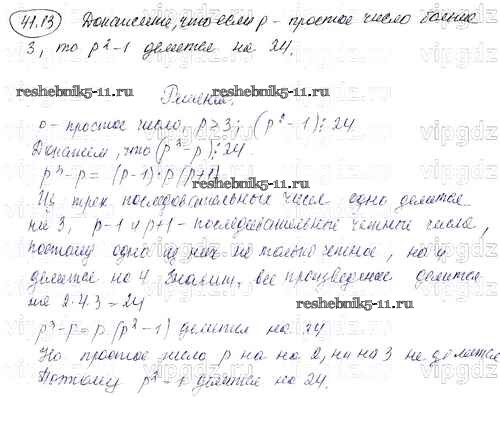 41.13 Докажите, что если p - простое число больше
3, то p²-1 делится на 24.
reshebnik5-11.ru reshebnik5-11.ru
Решение.
p - простое число, p>3; (p²-1)⋮24
Докажем, что (p³-p)⋮24
p³-p = (p-1)·p(p+1)
Из трех последовательных чисел одно делится
на 3, p-1 и p+1 - последовательные четные числа,
поэтому одно из них не только четное, но и
делится на 4. Значит, все произведение делится
на 2·4·3=24
reshebnik5-11.ru
p³-p=p(p²-1) делится на 24
Но простое число p ни на 2, ни на 3 не делится
Поэтому p²-1 делится на 24.
reshebnik5-11.ru